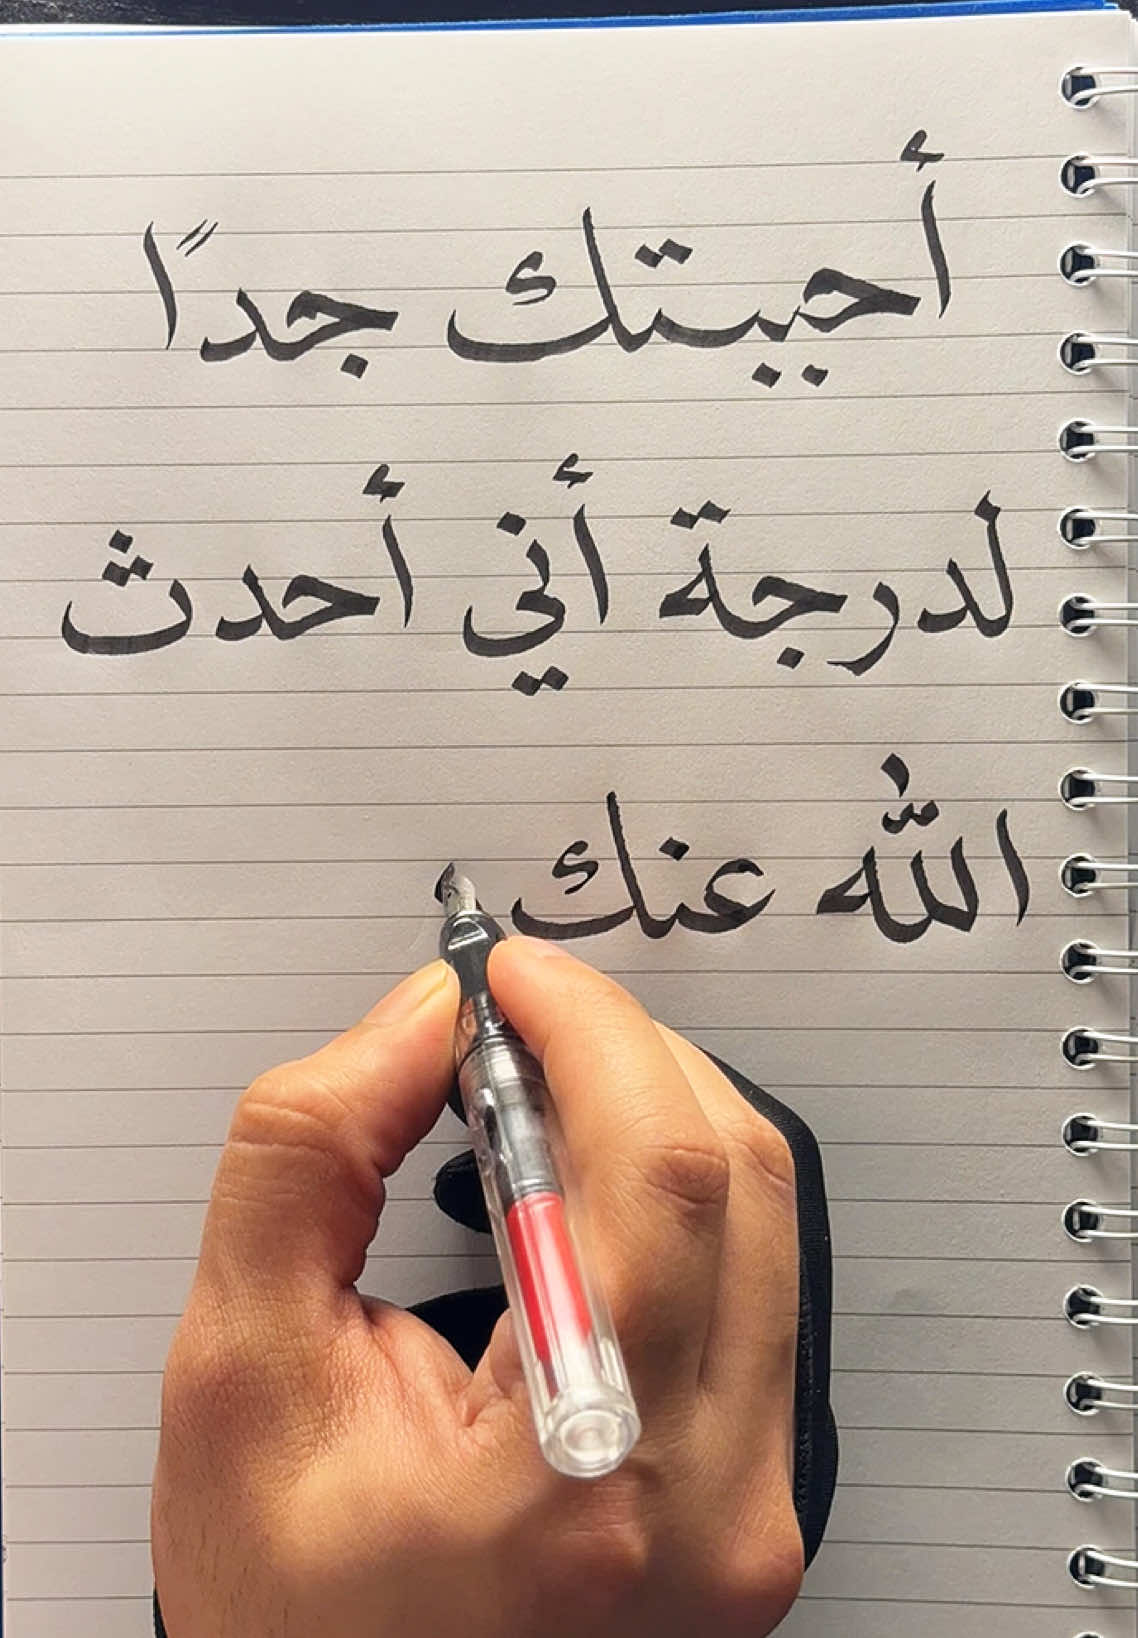 أحببتك جدًا
لدرجة أني أحدث
الله عنك